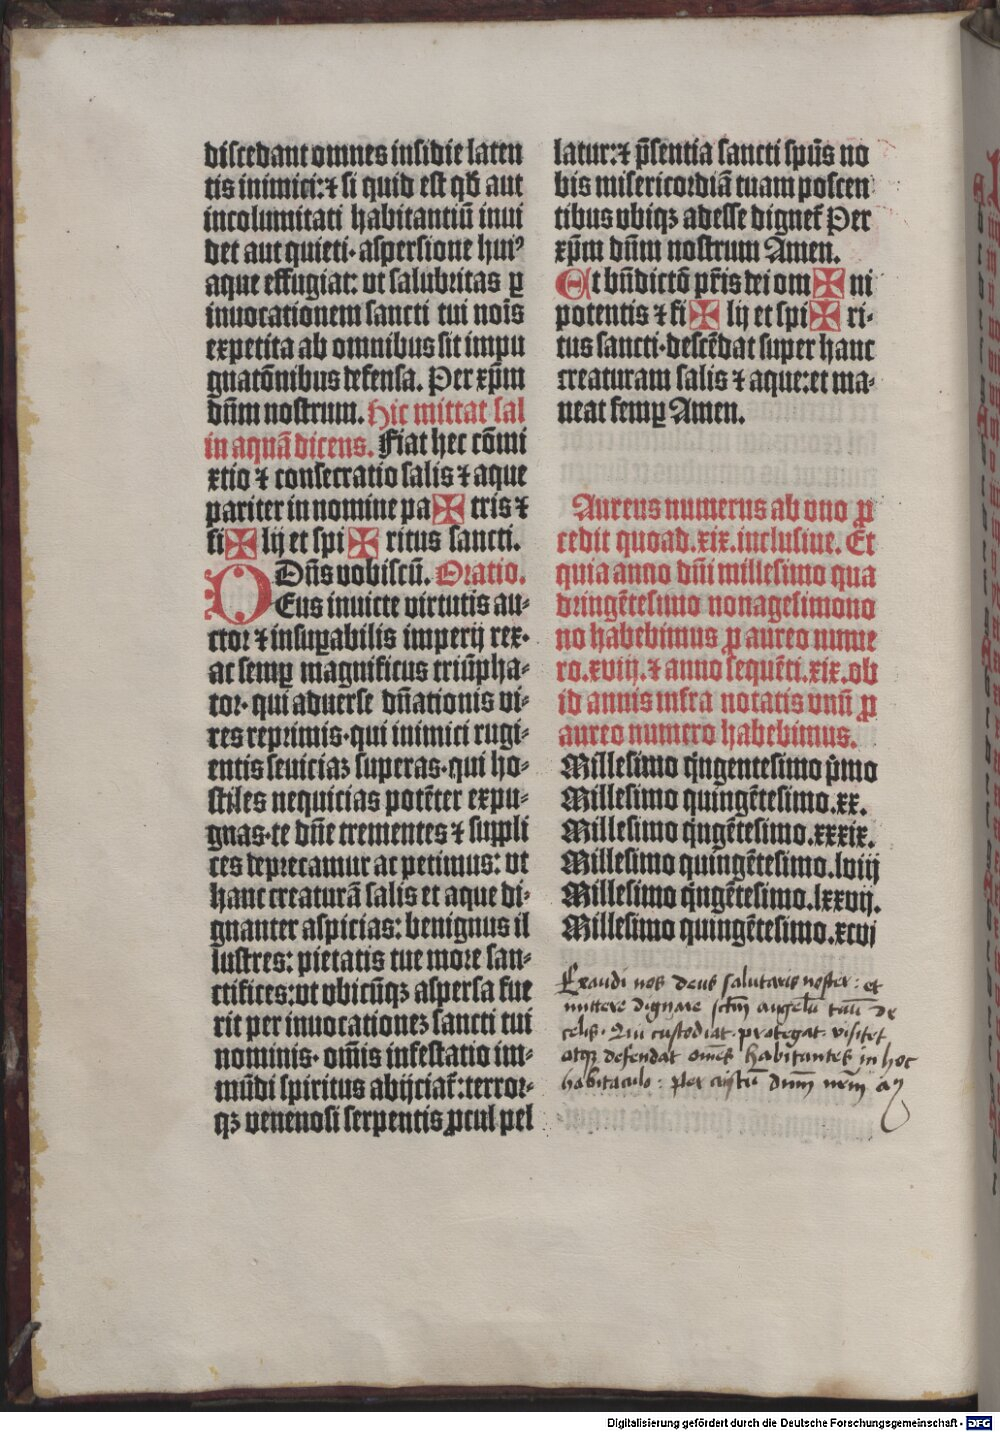 discedant omnes insidie laten
tis inimici: ⁊ si quid est qd̛ aut
incolumitati habitantiū inui
det aut quieti· aspersione huiꝰ
aque effugiat: vt salubritas ꝑ
inuocationem sancti tui nois̄
expetita ab omnibus sit impu
gnatōnibus defensa. Per xp̄m
dn̄m nostrum. Hic mittat sal
in aquā dicens. Fiat hec cōmi
xtio ⁊ consecratio salis ⁊ aque
pariter in nomine pa✠tris ⁊
fi✠lij et spi✠ritus sancti.
Dn̄s vobiscū. Oratio.
DEus inuicte virtutis au⸗
ctor ⁊ insuꝑabilis imperij rex·
ac semꝑ magnificus triūpha⸗
tor· qui aduerse dn̄ationis vi⸗
res reprimis· qui inimici rugi⸗
entis seuiciaz superas· qui ho⸗
stiles nequicias potēter expu⸗
gnas· te dn̄e trementes ⁊ suppli
ces deprecamur ac petimus: vt
hanc creaturā salis et aque di⸗
gnanter aspicias: benignus il
lustres: pietatis tue more san⸗
ctifices: vt vbicūqꝫ aspersa fue
rit per inuocationez sancti tui
nominis· om̄is infestatio im⸗
mūdi spiritus abijciat᷑: terror⸗
qꝫ venenosi serpentis ꝓcul pel
latur: ⁊ p̄sentia sancti spūs no
bis misericordiā tuam poscen
tibus vbiqꝫ adesse dignet᷑ Per
xp̄m dn̄m nostrum Amen.
Et bn̄dictō pr̄is dei om✠ni
potentis ⁊ fi✠lij et spi✠ri⸗
tus sancti· descēdat super hanc
creaturam salis ⁊ aque: et ma⸗
neat semꝑ Amen.
Aureus numerus ab vno ꝓ
cedit quoad .xix. inclusiue. Et
quia anno dn̄i millesimo qua
dringētesimo nonagesimono
no habebimus ꝓ aureo nume
ro .xviij. ⁊ anno sequēti .xix. ob
id annis infra notatis vnū ꝓ
aureo numero habebimus.
Millesimo q̇ngentesimo p̄mo
Millesimo quingētesimo .xx.
Millesimo q̇ngētesimo .xxxix.
Millesimo quingētesimo .lviij
Millesimo q̇ngētesimo .lxxvij.
Millesimo quingētesimo .xcvi
Exaudi nos deus salutaris noster: et
mittere dignare sctm̄ angelū tuū de
celis. Qui custodiat. protegat. visitet
atqꝫ defendat om̄es habitantes in hoc
habitaculo: Per cristū dn̄m nr̄m
Digitalisierung gefördert durch die Deutsche Forschungsgemeinschaft - DFG